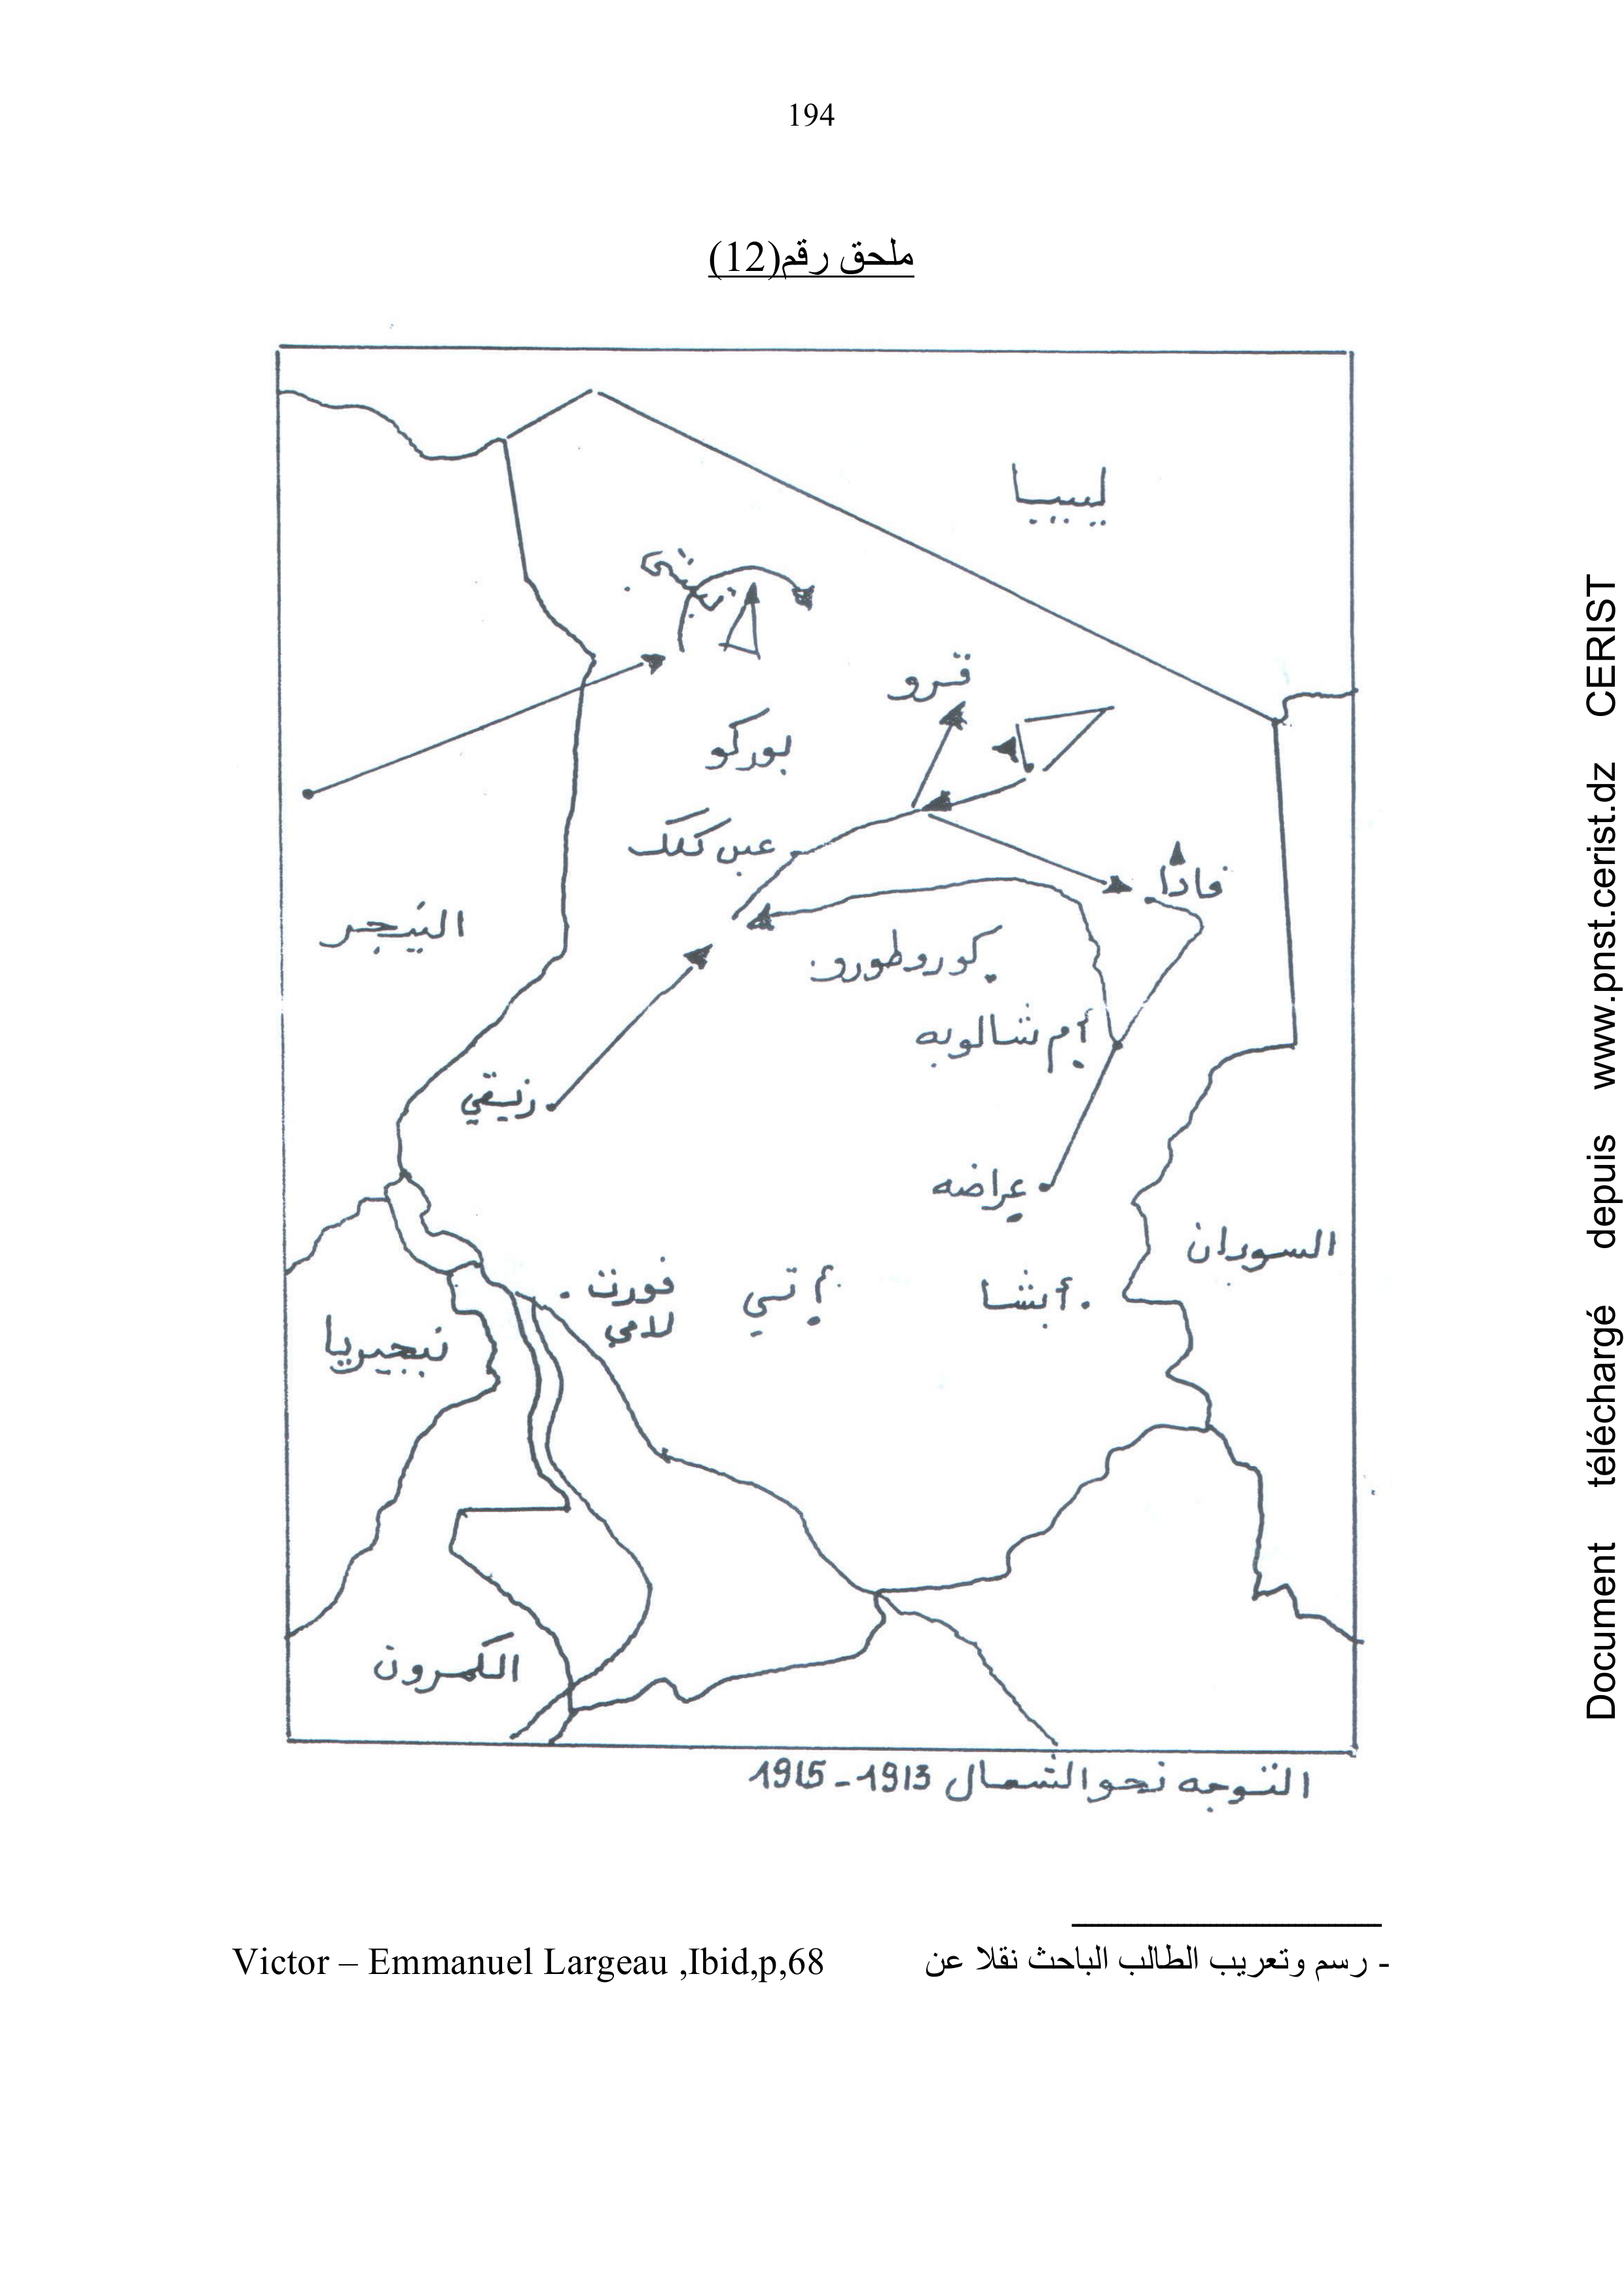 194
ملحق رقم(12)
ليبيا
تبستي
قرو
بوركو
عين كلك
فادا
النيجر
كوروطورو
أم شالوبه
زيقي
عراضه
السودان
فورت
لامي
أم تي
أبشا
نيجيريا
الكمرون
التوجه نحو الشمال 1913-1915
- رسم وتعريب الطالب الباحث نقلا عن Victor – Emmanuel Largeau ,Ibid,p,68
Document téléchargé depuis www.pnst.cerist.dz CERIST